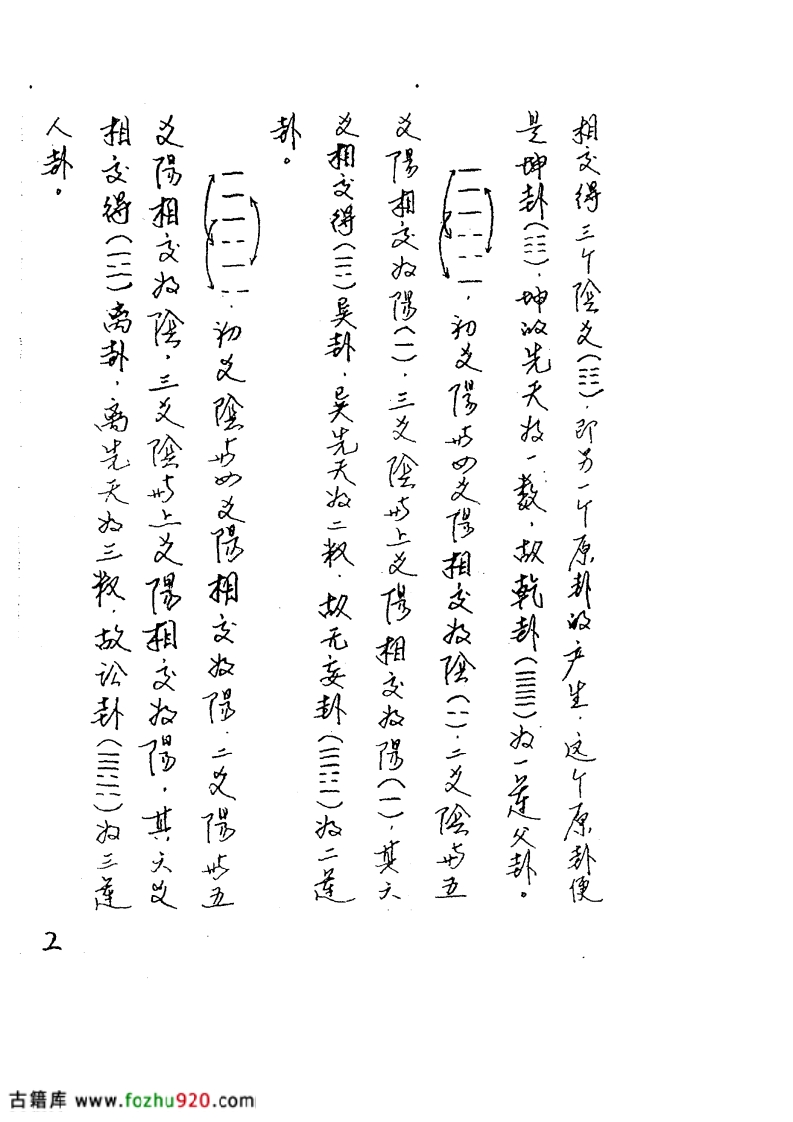 相交得三个陰爻(☷),即另一个原卦的产生,这个原卦便
是坤卦(☷),坤的先天为一數,故乾卦(䷀)为一運父卦。
,初爻陽與四爻陽相交为陰(⚋),二爻陰與五
爻陽相交为陽(⚊),三爻陰與上爻陽相交为陽(⚊),其六
爻相交得(☴)巽卦,巽先天为二数,故无妄卦(䷘)为二運
卦。
,初爻陰與四爻陽相交为陽,二爻陽與五
爻陽相交为陰,三爻陰與上爻陽相交为陽,其六爻
相交得(☲)离卦,离先天为三数,故讼卦(䷅)为三運
人卦。
2
古籍库 www.fozhu920.com